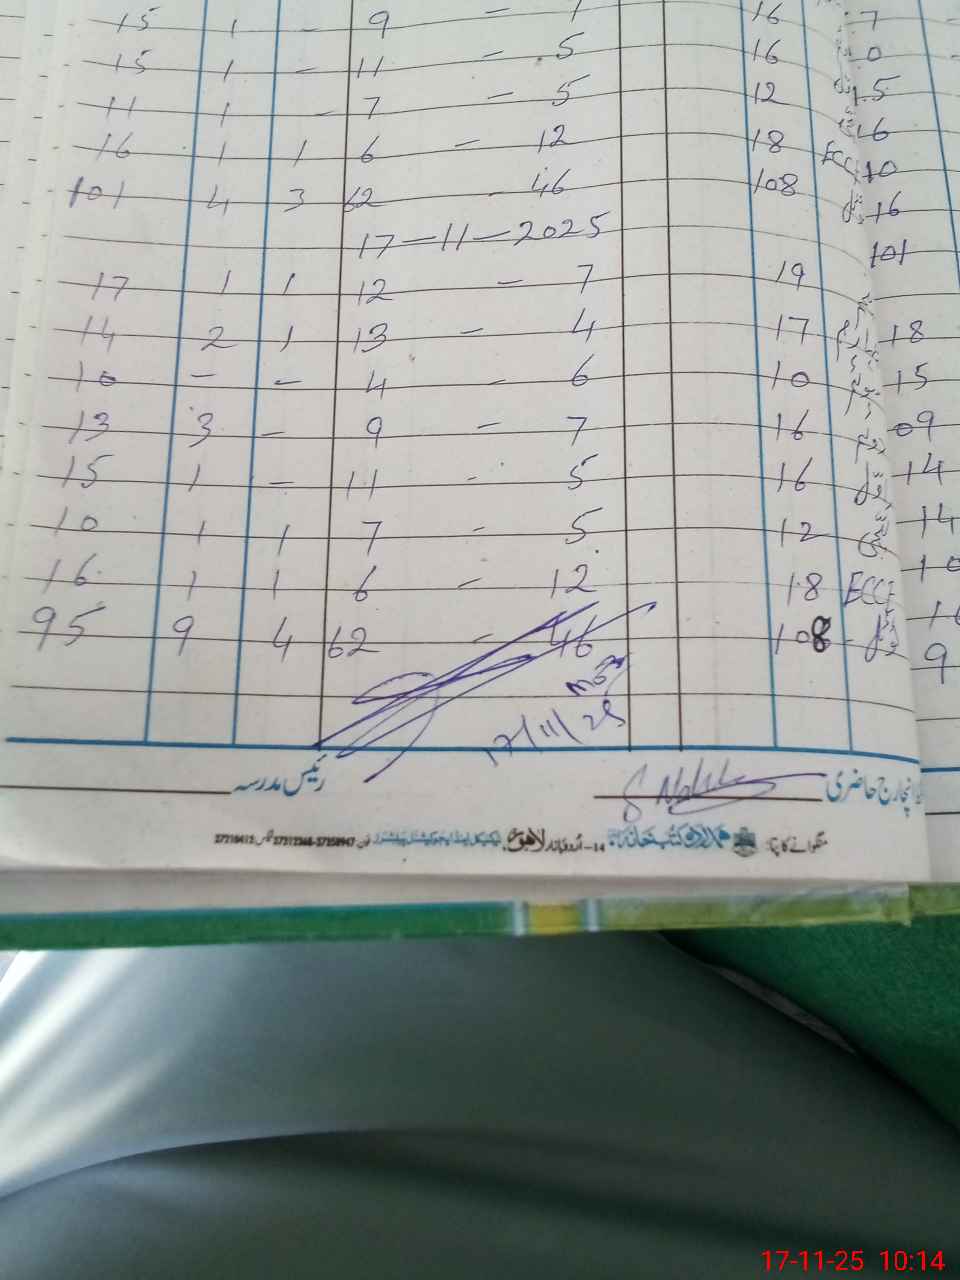 15 1 - 9 - 7 16 7
15 1 - 11 - 5 16 0
11 1 - 7 - 5 12 15
16 1 1 6 - 12 18 ECCE 16
10
101 4 3 62 - 46 108 16
17-11-2025 101
17 1 1 12 - 7 19
14 2 1 13 - 4 17 18
10 - - 4 - 6 10 15
13 3 - 9 - 7 16 09
15 1 - 11 - 5 16 14
10 1 1 7 - 5 12 14
16 1 1 6 - 12 18 ECCE 10
95 9 4 62 - 46 108
17/11/25
رئیس مدرسہ
انچارج حاضری
منگوانے کا پتہ: ہمالائی کتب خانہ 14-اُردو بازار لاہور
17-11-25 10:14